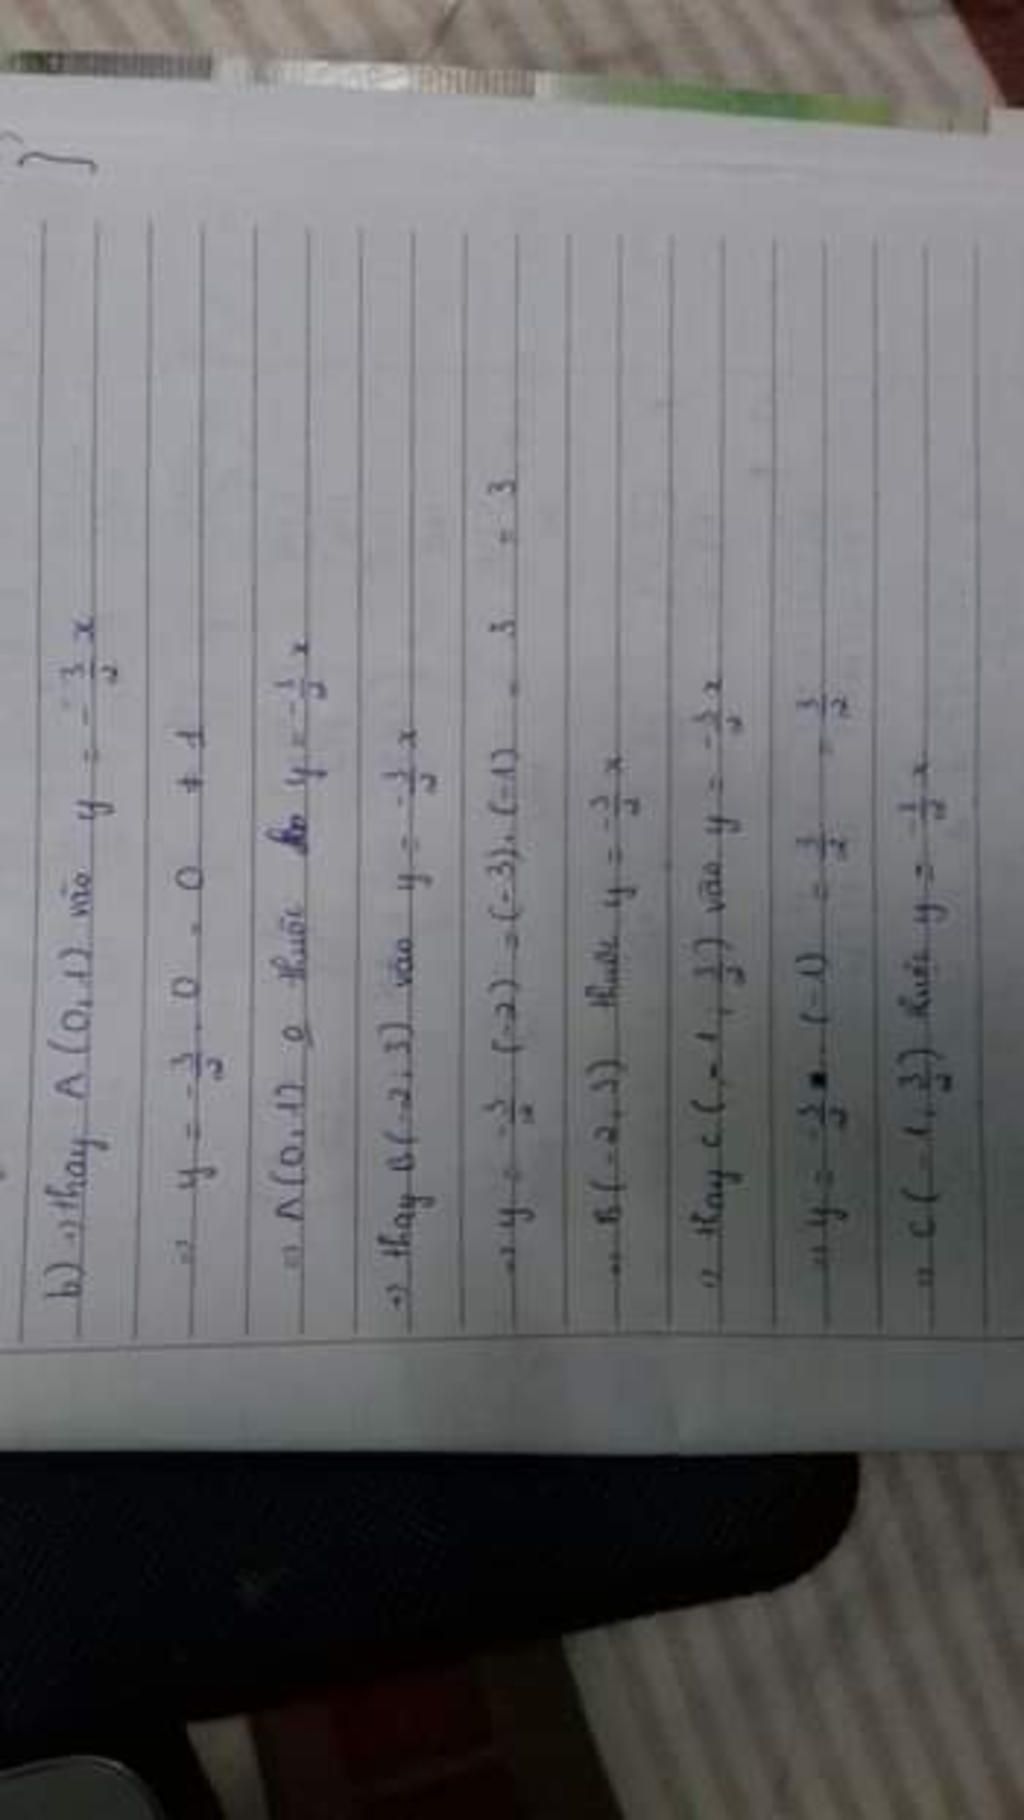 b) => thay A(0,1) vào y = -3/2 x
=> y = -3/2 . 0 = 0 ≠ 1
=> A(0,1) o thuộc y = -3/2 x
=> thay B(-2,3) vào y = -3/2 x
=> y = -3/2 (-2) = (-3).(-1) = 3 = 3
=> B(-2,3) thuộc y = -3/2 x
=> thay C(-1, 3/2) vào y = -3/2 x
=> y = -3/2 . (-1) = 3/2 = 3/2
=> C(-1, 3/2) thuộc y = -3/2 x